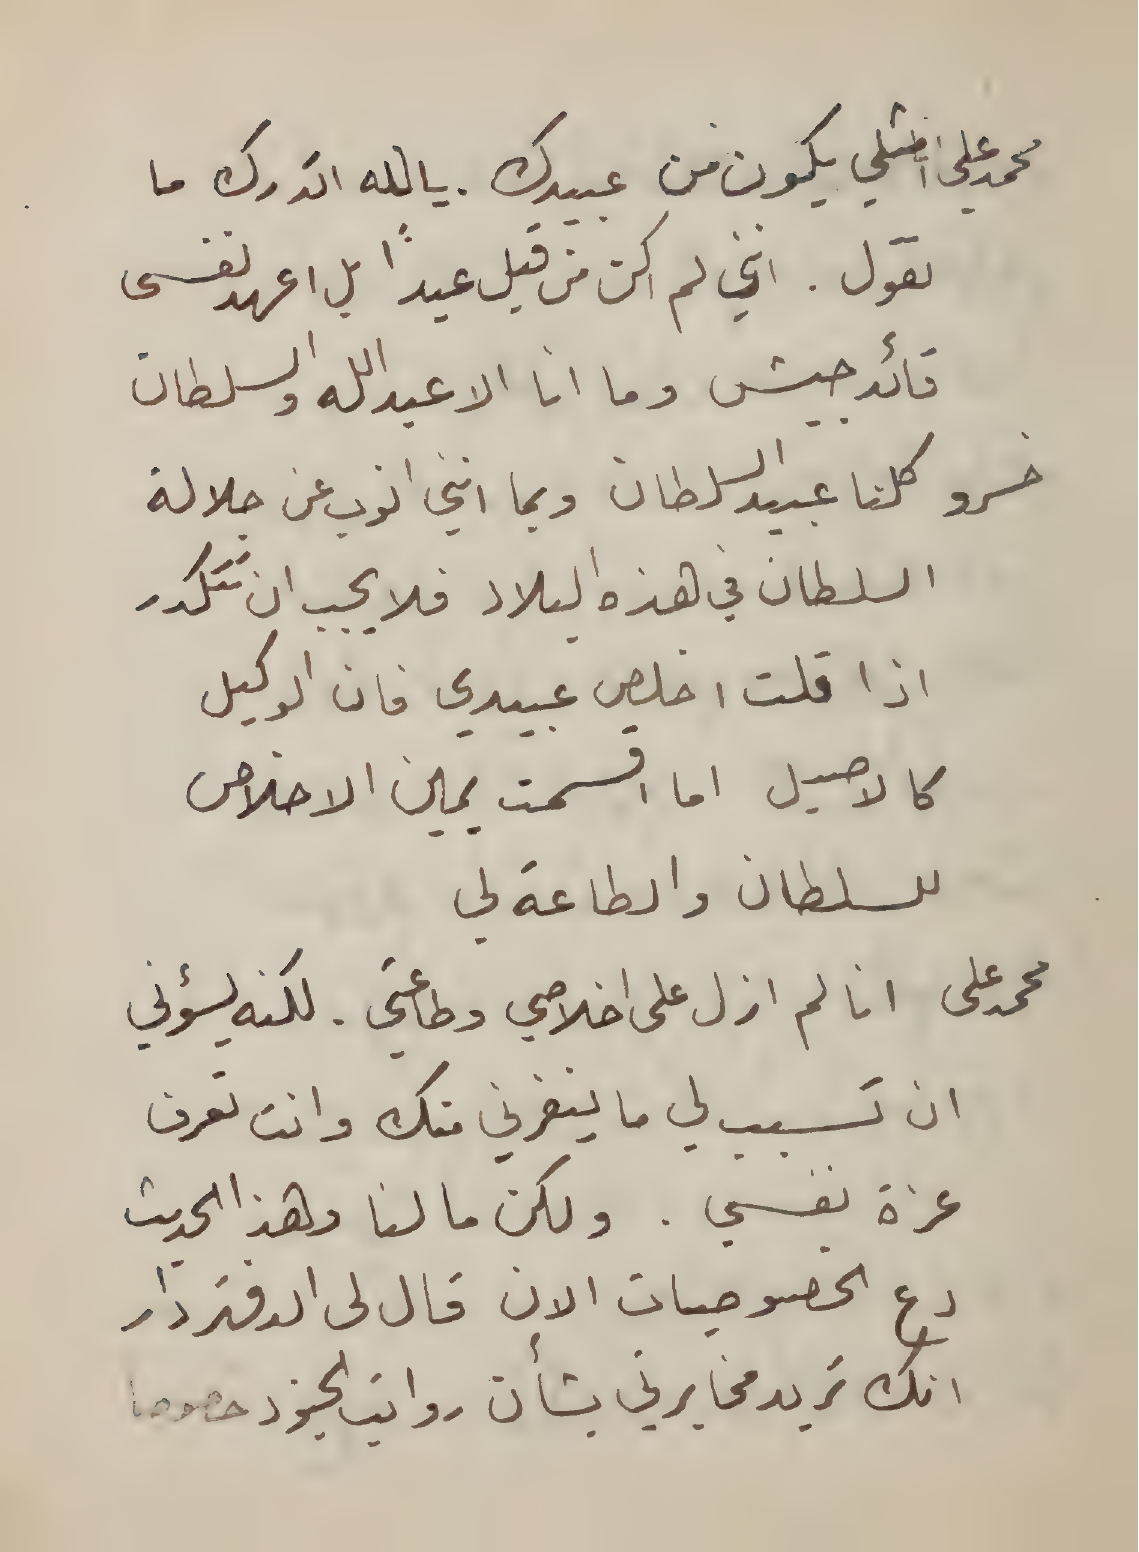 محمد علي أمثلي يكون من عبيدك . يا لله اتدرك ما
تقول . انني لم اكن من قبل عبداً بل اعهد نفسى
قائد جيش وما انا الا عبد الله والسلطان
خسرو كلنا عبيد السلطان وبما انني انوب عن جلالة
السلطان في هذه البلاد فلا يجب ان تتكدر
اذا قلت اخلص عبيدي فان الوكيل
كالاصيل اما اقسمت يمين الاخلاص
للسلطان والطاعة لي
محمد علي انا لم ازل على اخلاصي وطاعتي . لكنه يسؤني
ان تسبب لي ما ينفرني منك وانت تعرف
عزة نفسي . ولكن ما لنا وهذا الحديث
دع الخصوصيات الان قال لى الدفتردار
انك تريد مخابرتي بشأن رواتب الجنود خصوصا